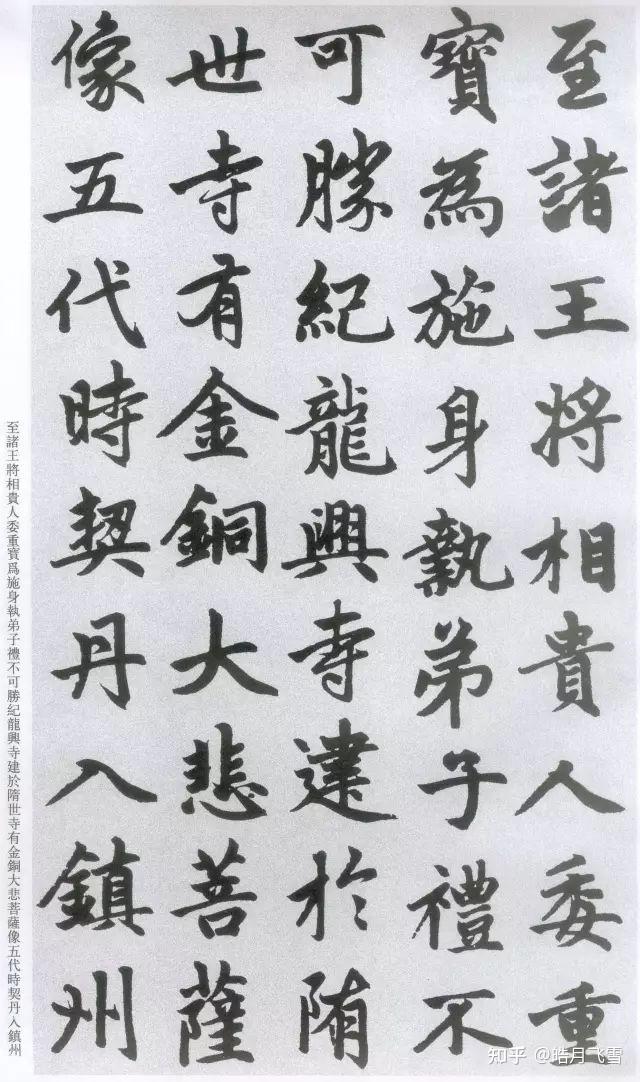 至諸王將相貴人委重
寶為施身執弟子禮不
可勝紀龍興寺建於隋
世寺有金銅大悲菩薩
像五代時契丹入鎮州
至諸王將相貴人委重寶爲施身執弟子禮不可勝紀龍興寺建於隋世寺有金銅大悲菩薩像五代時契丹入鎮州
知乎 @皓月飞雪